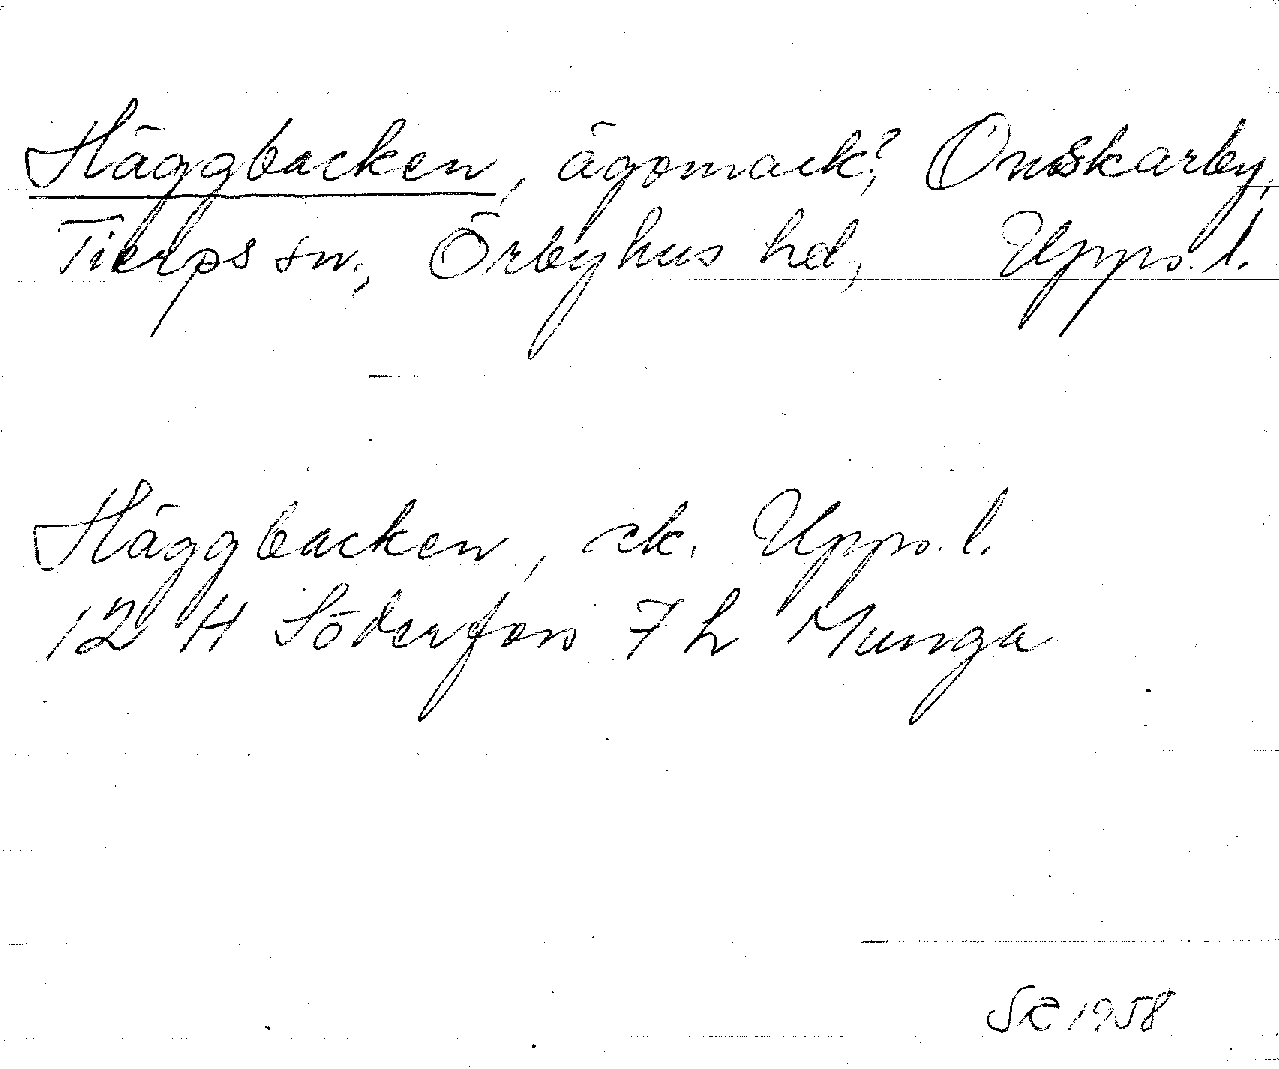 Häggbacken, ägomark?, Onskarby,
Tierps sn., Örbyhus hd, Upps.l.
Häggbacken, ek. Upps. l.
12 H Söderfors 7 h Munga
SR 1958